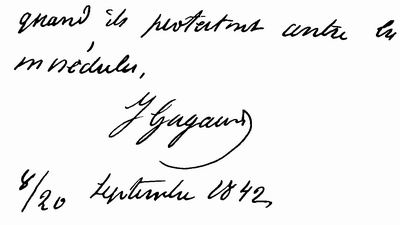 quand ils protestent contre les
incrédules,
J Gagarin
8/20 Septembre 1842,